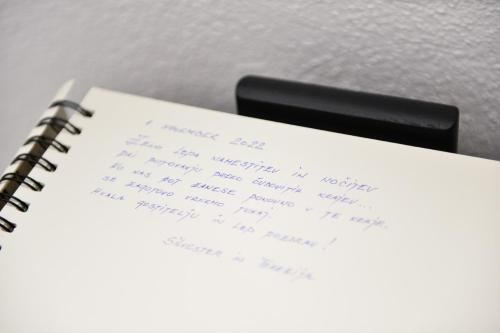 1 NOVEMBER 2022
ZELO LEPA NAMESTITEV IN NOČITEV
PRI POTOVANJU PREKO ČUDOVITIH KRAJEV...
KO NAS POT ZANESE PONOVNO V TE KRAJE,
SE ZAGOTOVO VRNEMO TUKAJ.
HVALA GOSTITELJU IN LEP POZDRAV!
SILVESTER IN